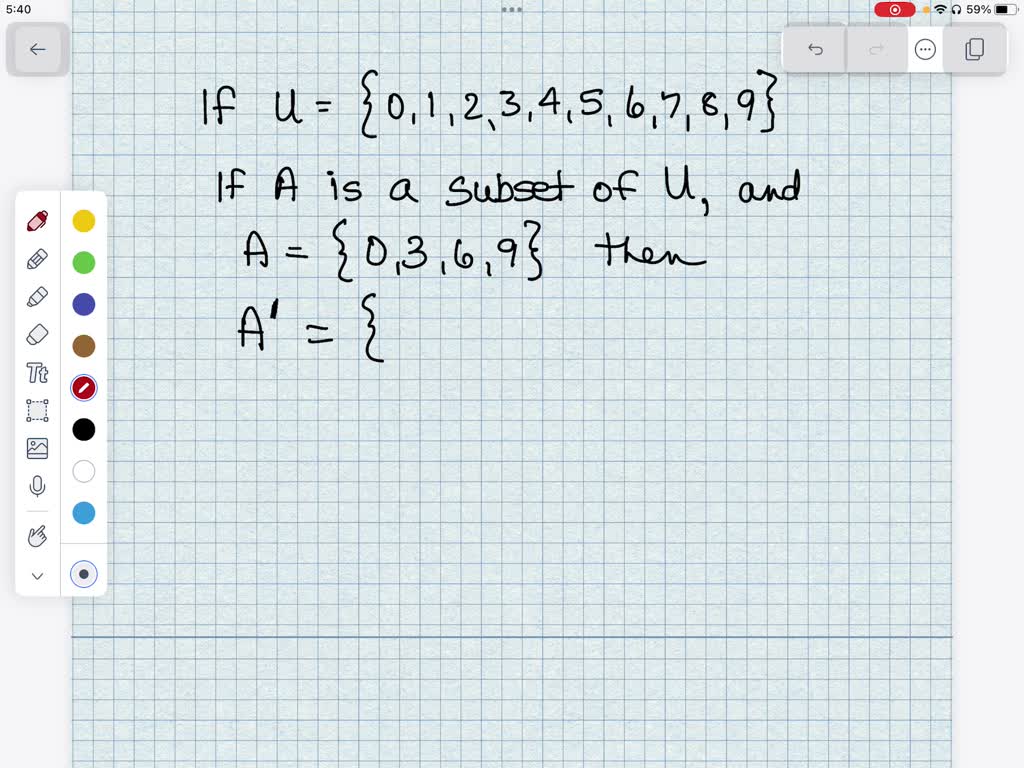 5:40
59%
If U = {0,1,2,3,4,5,6,7,8,9}
If A is a subset of U, and
A = {0,3,6,9} then
A' = {
Tt